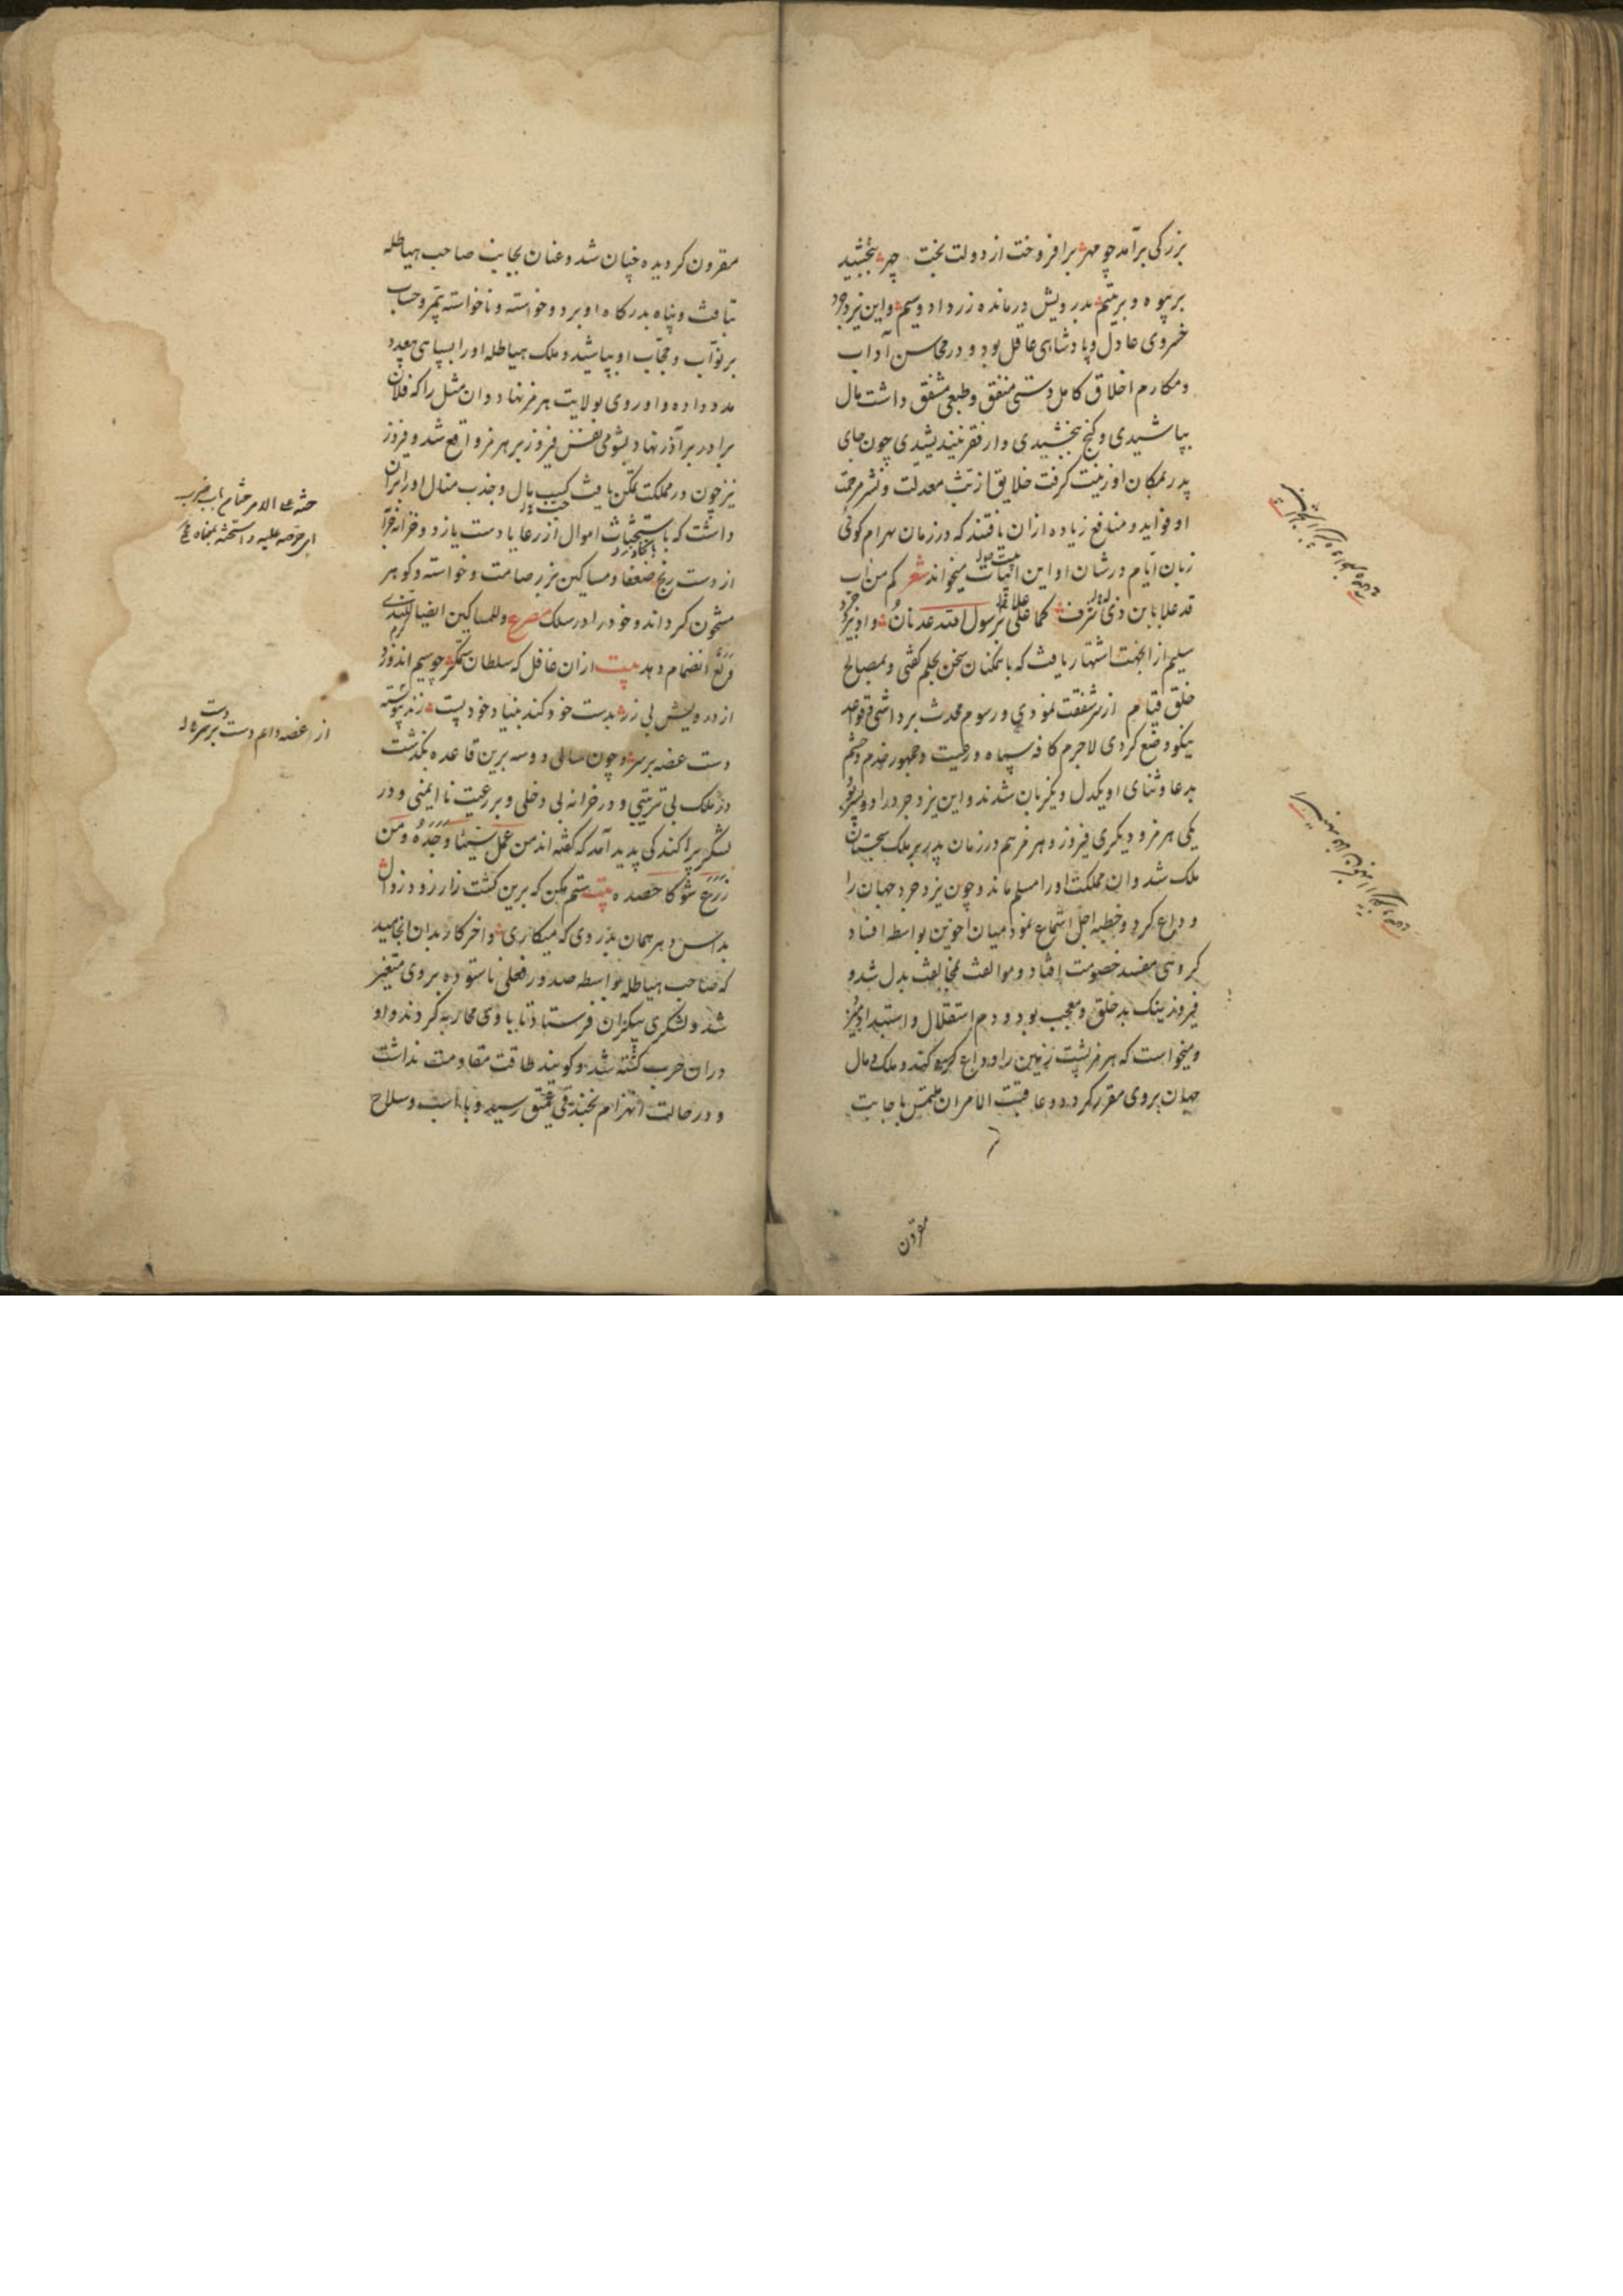 بزرکی برآمد چو مهر برافروخت از دولت بخت چهر ببخشید
بر بیوه و بر یتیم بدرویش درمانده زر داد و سیم و این یزدجرد
خسروی عادل و پادشاهی عاقل بود و در محاسن آداب
و مکارم اخلاق کامل دستی منفق و طبعی مشفق داشت مال
بپاشیدی و کنج ببخشیدی و از فقر نیندیشیدی چون جای
پدر بمکان او زینت کرفت خلایق از بث معدلت و نشر مرحمت
او فواید و منافع زیاده ازان یافتند که در زمان بهرام کور
زبان ایام در شان او این ابیات میخواند شعر کم من اب
قد علا بابن ذی شرف کما علی برسول الله عدنان و او یزدجرد
سلیم ازانجهت اشتهار یافت که باتمکنان سخن بحلم کفتی و بمصالح
خلق قیام از سر شفقت نمودی و رسوم محدث برداشتی و قواعد
نیکو وضع کردی لاجرم کافه سپاه و رعیت و جمهور خدم و حشم
بدعا و ثنای او یکدل و یکزبان شدند و این یزدجرد را دو پسر بود
یکی هرمز و دیکری فیروز و هرمز هم در زمان پدر بر ملک سجستان
ملک شد و ان مملکت او را مسلم ماند و چون یزدجرد جهان را
وداع کرد و خطبه اجل استماع نمود میان اخوین بواسطه افساد
کروهی مفسد خصومت افتاد و موالفت بمخالفت بدل شد و
فیروز نیک بد خلق و معجب بود و دم استقلال و استبداد میزد
و میخواست که هرمز پشت زمین را وداع کند و ملک و مال
جهان بروی مقرر کردد و عاقبت الامر ان ملتمس باجابت
مقرون
مقرون کردیده چنان شد و عنان بجانب صاحب هیاطله
بتافت و پناه بدرکاه او برد و خواسته و ناخواسته بی مر و حساب
بر نواب و حجاب او بپاشید و ملک هیاطله او را بسپاهی بیعدد
مدد داده و او روی بولایت هرمز نهاد و ان مثل را که فلان
برادر بر آذر نهاد بشومی نفس فیروز بر هرمز واقع شد و فیروز
نیز چون در مملکت تمکن یافت کسب مال و جذب منال او را بران
داشت که باستحثاث اموال از رعایا دست یازد و خزانه خود را
از دست رنج ضعفا و مساکین بزر صامت و خواسته و کوهر
مشحون کرداند و خود را در سلک مصرع و للمساکین ایضا بالندی
ولع انضمام دهد بیت ازان غافل که سلطان ستمکر چو سیم اندوزد
از درویش بی زر بدست خود کند بنیاد خود پست زند پیوسته
دست غصه بر سر و چون سالی دو سه برین قاعده بکذشت
در ملک بی تربیتی و در خزانه بی دخلی و بر رعیت ناایمنی و در
لشکر پراکندکی پدید آمد که کفته اند من عمل سیئا وجده و من
زرع شوکا حصده بیت ستم مکن که برین کشت زار زود زوال
بداس دهر همان بدروی که میکاری و آخر کار بدان انجامید
که صاحب هیاطله بواسطه صدور فعلی ناستوده بروی متغیر
شد و لشکری بیکران فرستاد تا با وی محاربه کردند و او
دران حرب کشته شد و کویند طاقت مقاومت نداشت
و در حالت انهزام بخندقی عمیق رسید و با اسب و سلاح
حثه علی الامر
ای حرضه علیه و استحثه بمعناه
از غصه دایم دست بر سر